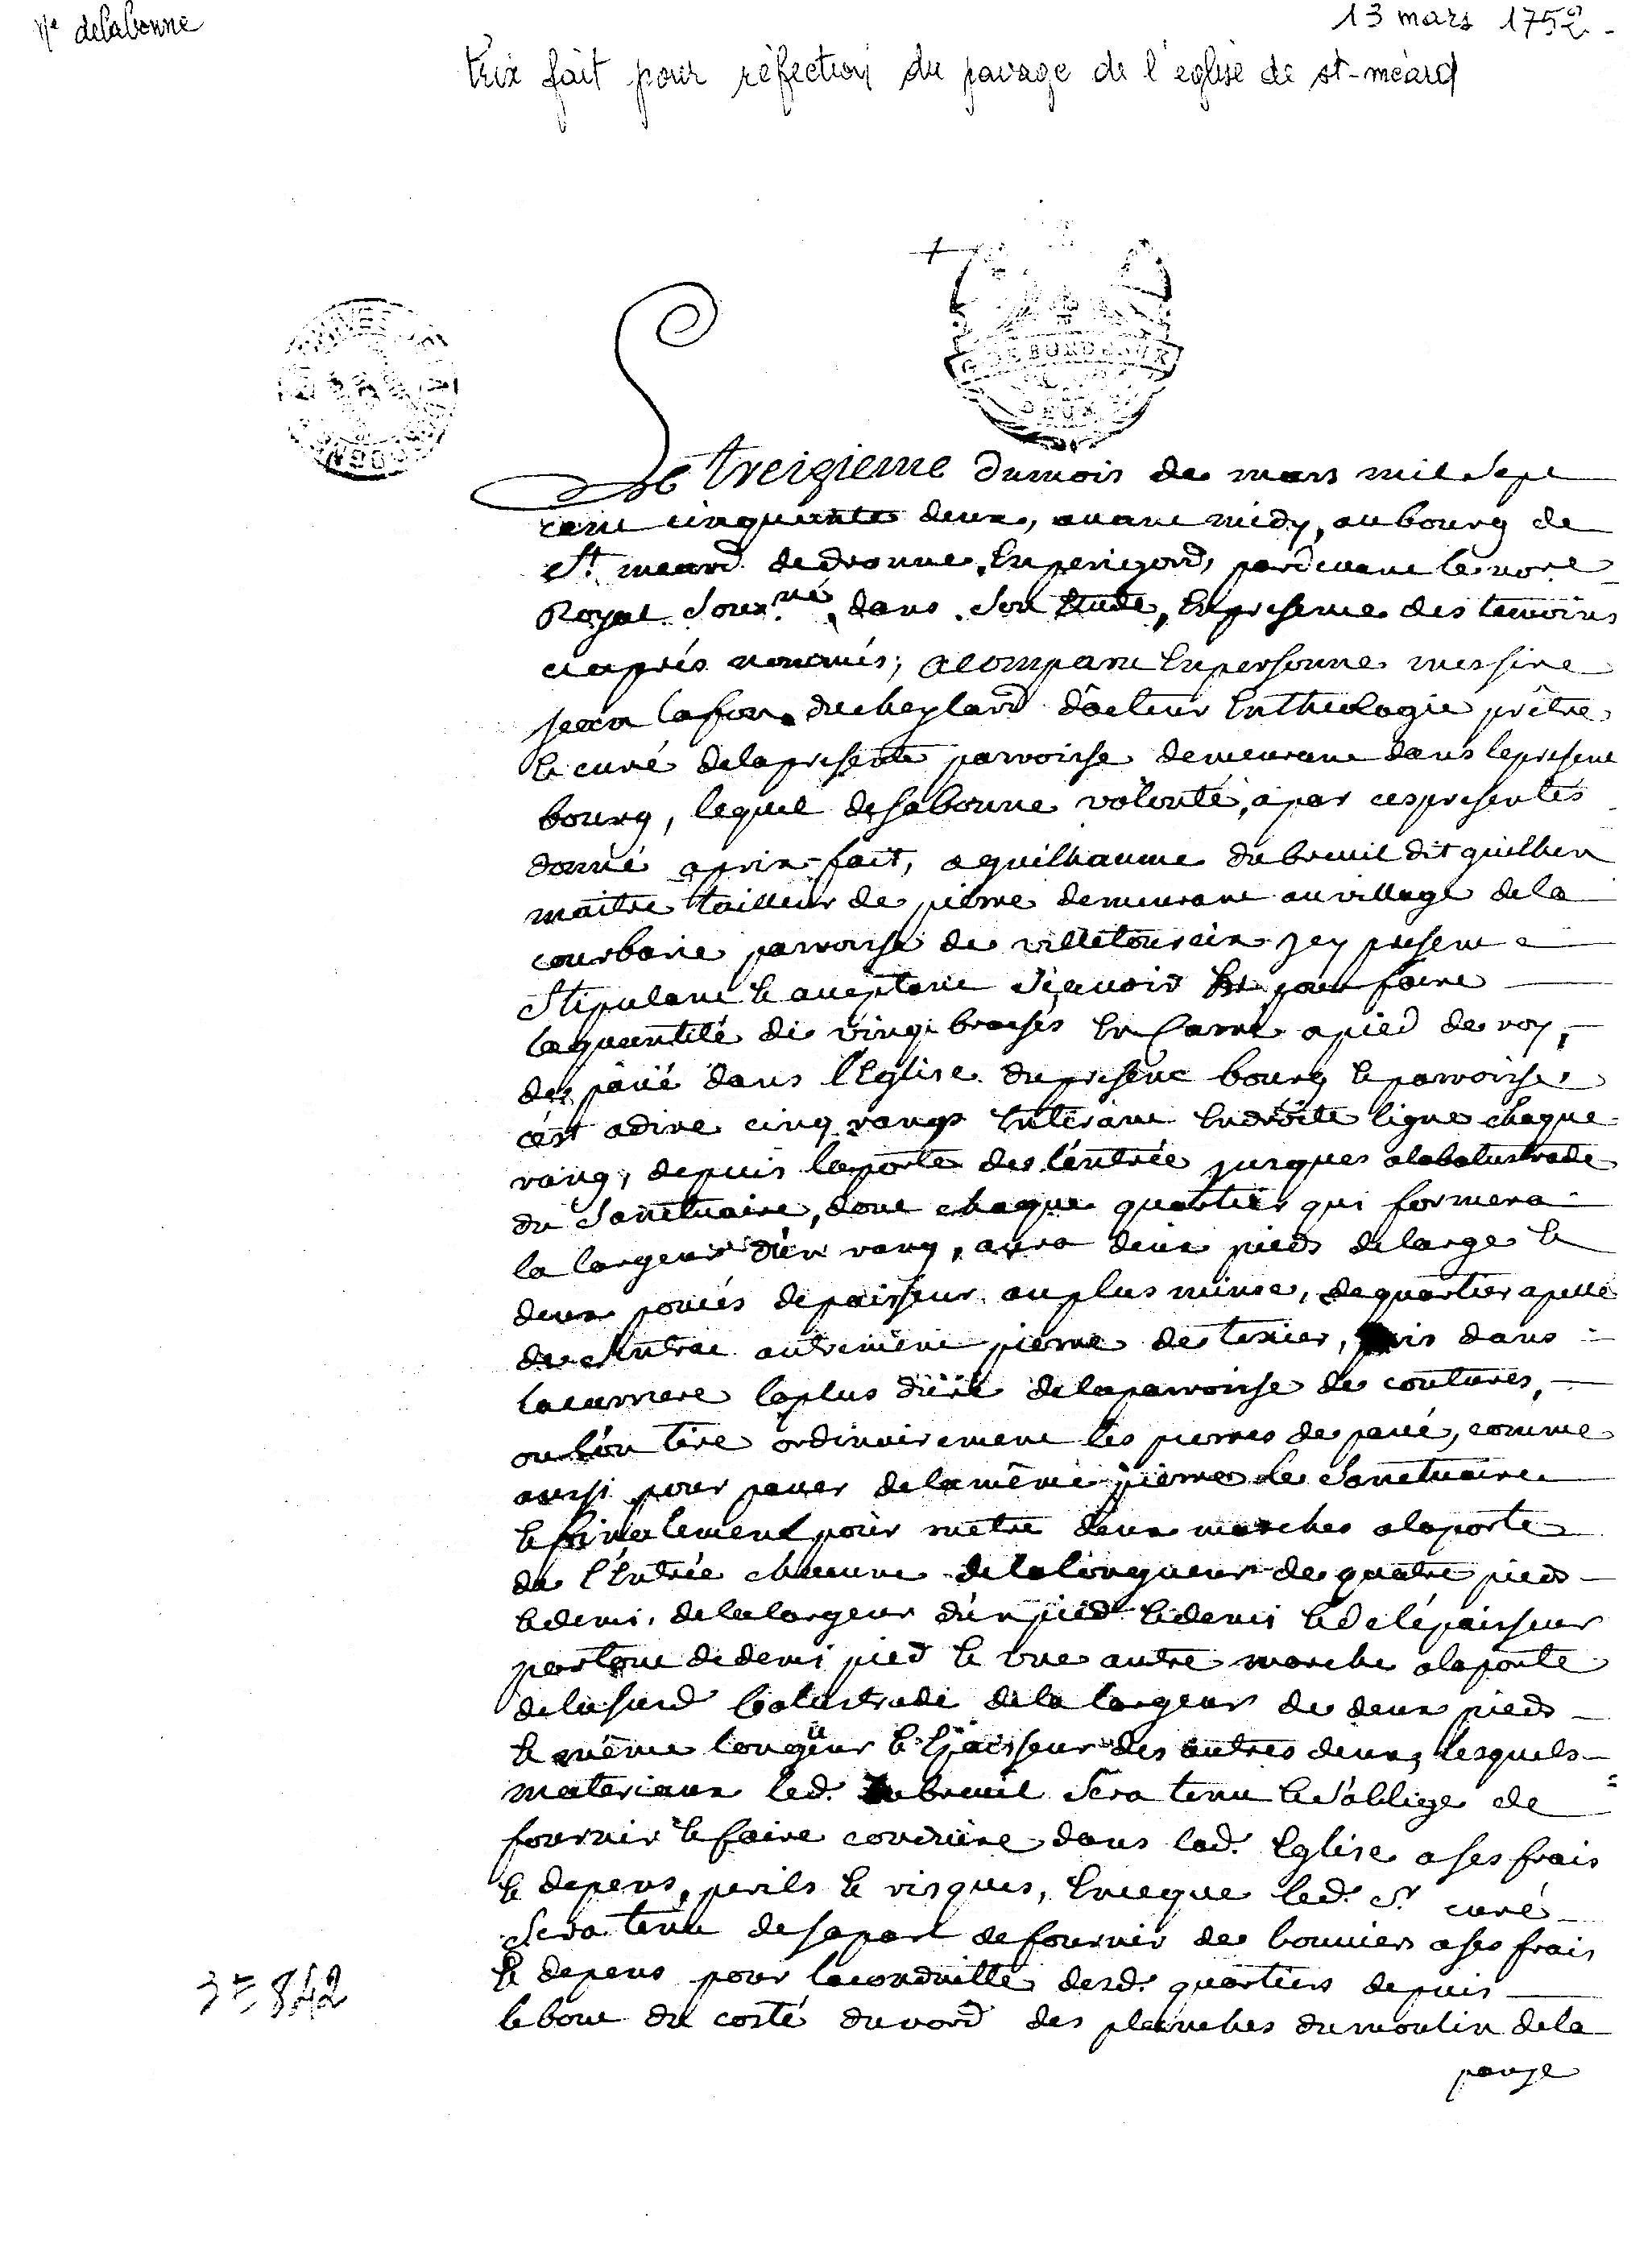 Ne delabonne
13 mars 1752
Prix fait pour réfection du pavage de l'église de st-méard
G. DE BORDEAUX
DEUX
Le treizieme dumois de mars mil sept
cent cinquante deux, avant midy, au bourg de
St. meard de dronne, En perigord, pardevant le nore
Royal soux.né, dans son Etude, En presence des temoins
cy aprés nommés, a comparu En personne messire
jean Lafon ducheylard docteur En theologie prêtre
Et curé dela presente parroisse demeurant dans le present
bourg, lequel de sa bonne volonté, a par ces presentes
donné a prix-fait, a guilhaume dubreuil dit guilhen
maitre tailleur de pierre demeurant au village dela
courbarie parroisse de villetoureix icy present
stipulant Et aceptant sçavoir Est pour faire
la quantité de vingt brasses En Carré a pied de roy,
de pavé dans l'Eglise du present bourg Et parroisse,
c'est adire cinq rangs En droite ligne chaque
rang, depuis la porte de l'entrée jusques a la balustrade
du Sanctuaire, dont chaque quartier qui formera
la largeur d'un rang, aura deux pieds de large Et
deux pouces depaisseur au plus mince, de quartier apellé
de autrement pierre de texier, pris dans
la carriere la plus dure dela parroisse de coutures,
ou l'on tire ordinairement les pierres de pavé, comme
aussi pour paver dela même pierre le Sanctuaire
Et finalement pour metre deux marches a la porte
de l'Entrée chacune dela longueur de quatre pieds
Et demi, dela largeur d'un pied Et demi Et de l'épaisseur
partout de demi pied Et une autre marche a la porte
de la susd balustrade de la largeur de deux pieds
Et même longueur Et Epaisseur des autres deux, lesquels
materiaux led. dubreuil sera tenu Et s'oblige de
fournir Et faire conduire dans lad. Eglise a ses frais
Et depens, perils Et risques, led. Sr curé
sera tenu de sa part de fournir de bouviers a ses frais
Et depens pour la conduitte desd. quartiers depuis
le bout du costé du nord des planches du moulin dela
3E 842